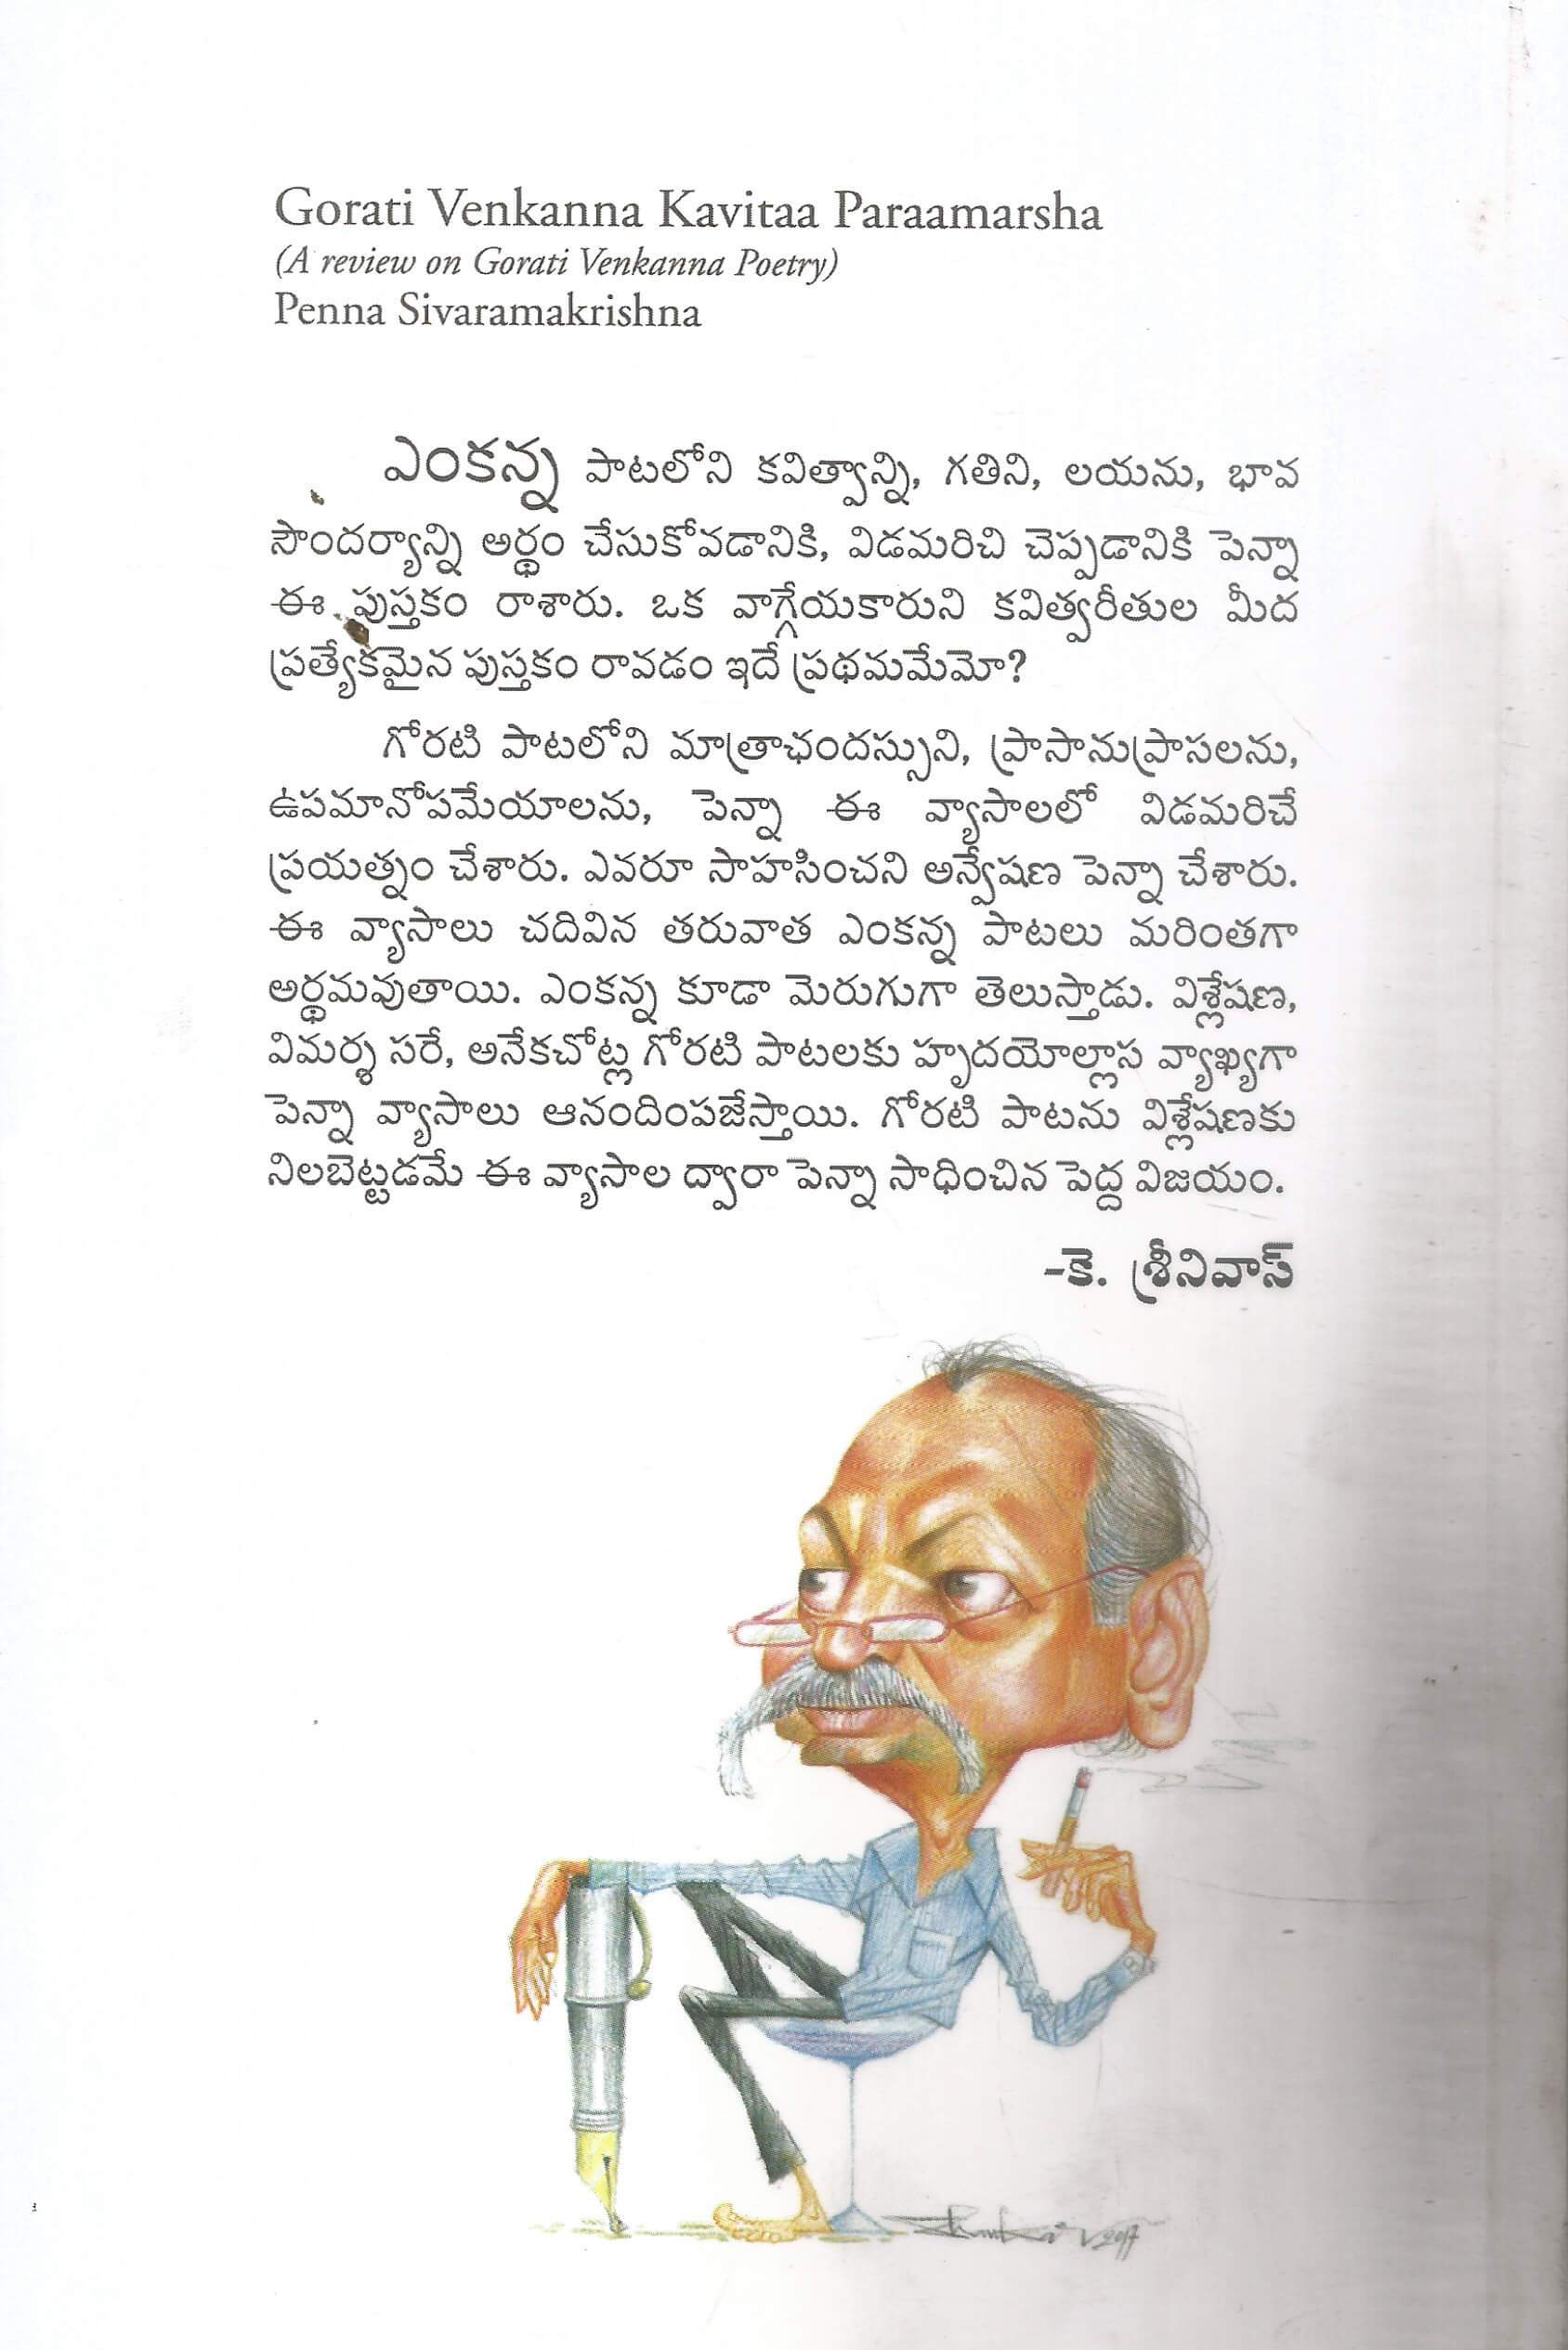 Gorati Venkanna Kavitaa Paraamarsha
(A review on Gorati Venkanna Poetry)
Penna Sivaramakrishna
ఎంకన్న పాటలోని కవిత్వాన్ని, గతిని, లయను, భావ
సౌందర్యాన్ని అర్థం చేసుకోవడానికి, విడమరిచి చెప్పడానికి పెన్నా
ఈ పుస్తకం రాశారు. ఒక వాగ్గేయకారుని కవిత్వరీతుల మీద
ప్రత్యేకమైన పుస్తకం రావడం ఇదే ప్రథమమేమో?
గోరటి పాటలోని మాత్రాఛందస్సుని, ప్రాసానుప్రాసలను,
ఉపమానోపమేయాలను, పెన్నా ఈ వ్యాసాలలో విడమరిచే
ప్రయత్నం చేశారు. ఎవరూ సాహసించని అన్వేషణ పెన్నా చేశారు.
ఈ వ్యాసాలు చదివిన తరువాత ఎంకన్న పాటలు మరింతగా
అర్థమవుతాయి. ఎంకన్న కూడా మెరుగుగా తెలుస్తాడు. విశ్లేషణ,
విమర్శ సరే, అనేకచోట్ల గోరటి పాటలకు హృదయోల్లాస వ్యాఖ్యగా
పెన్నా వ్యాసాలు ఆనందింపజేస్తాయి. గోరటి పాటను విశ్లేషణకు
నిలబెట్టడమే ఈ వ్యాసాల ద్వారా పెన్నా సాధించిన పెద్ద విజయం.
-కె. శ్రీనివాస్
Shankar 2017